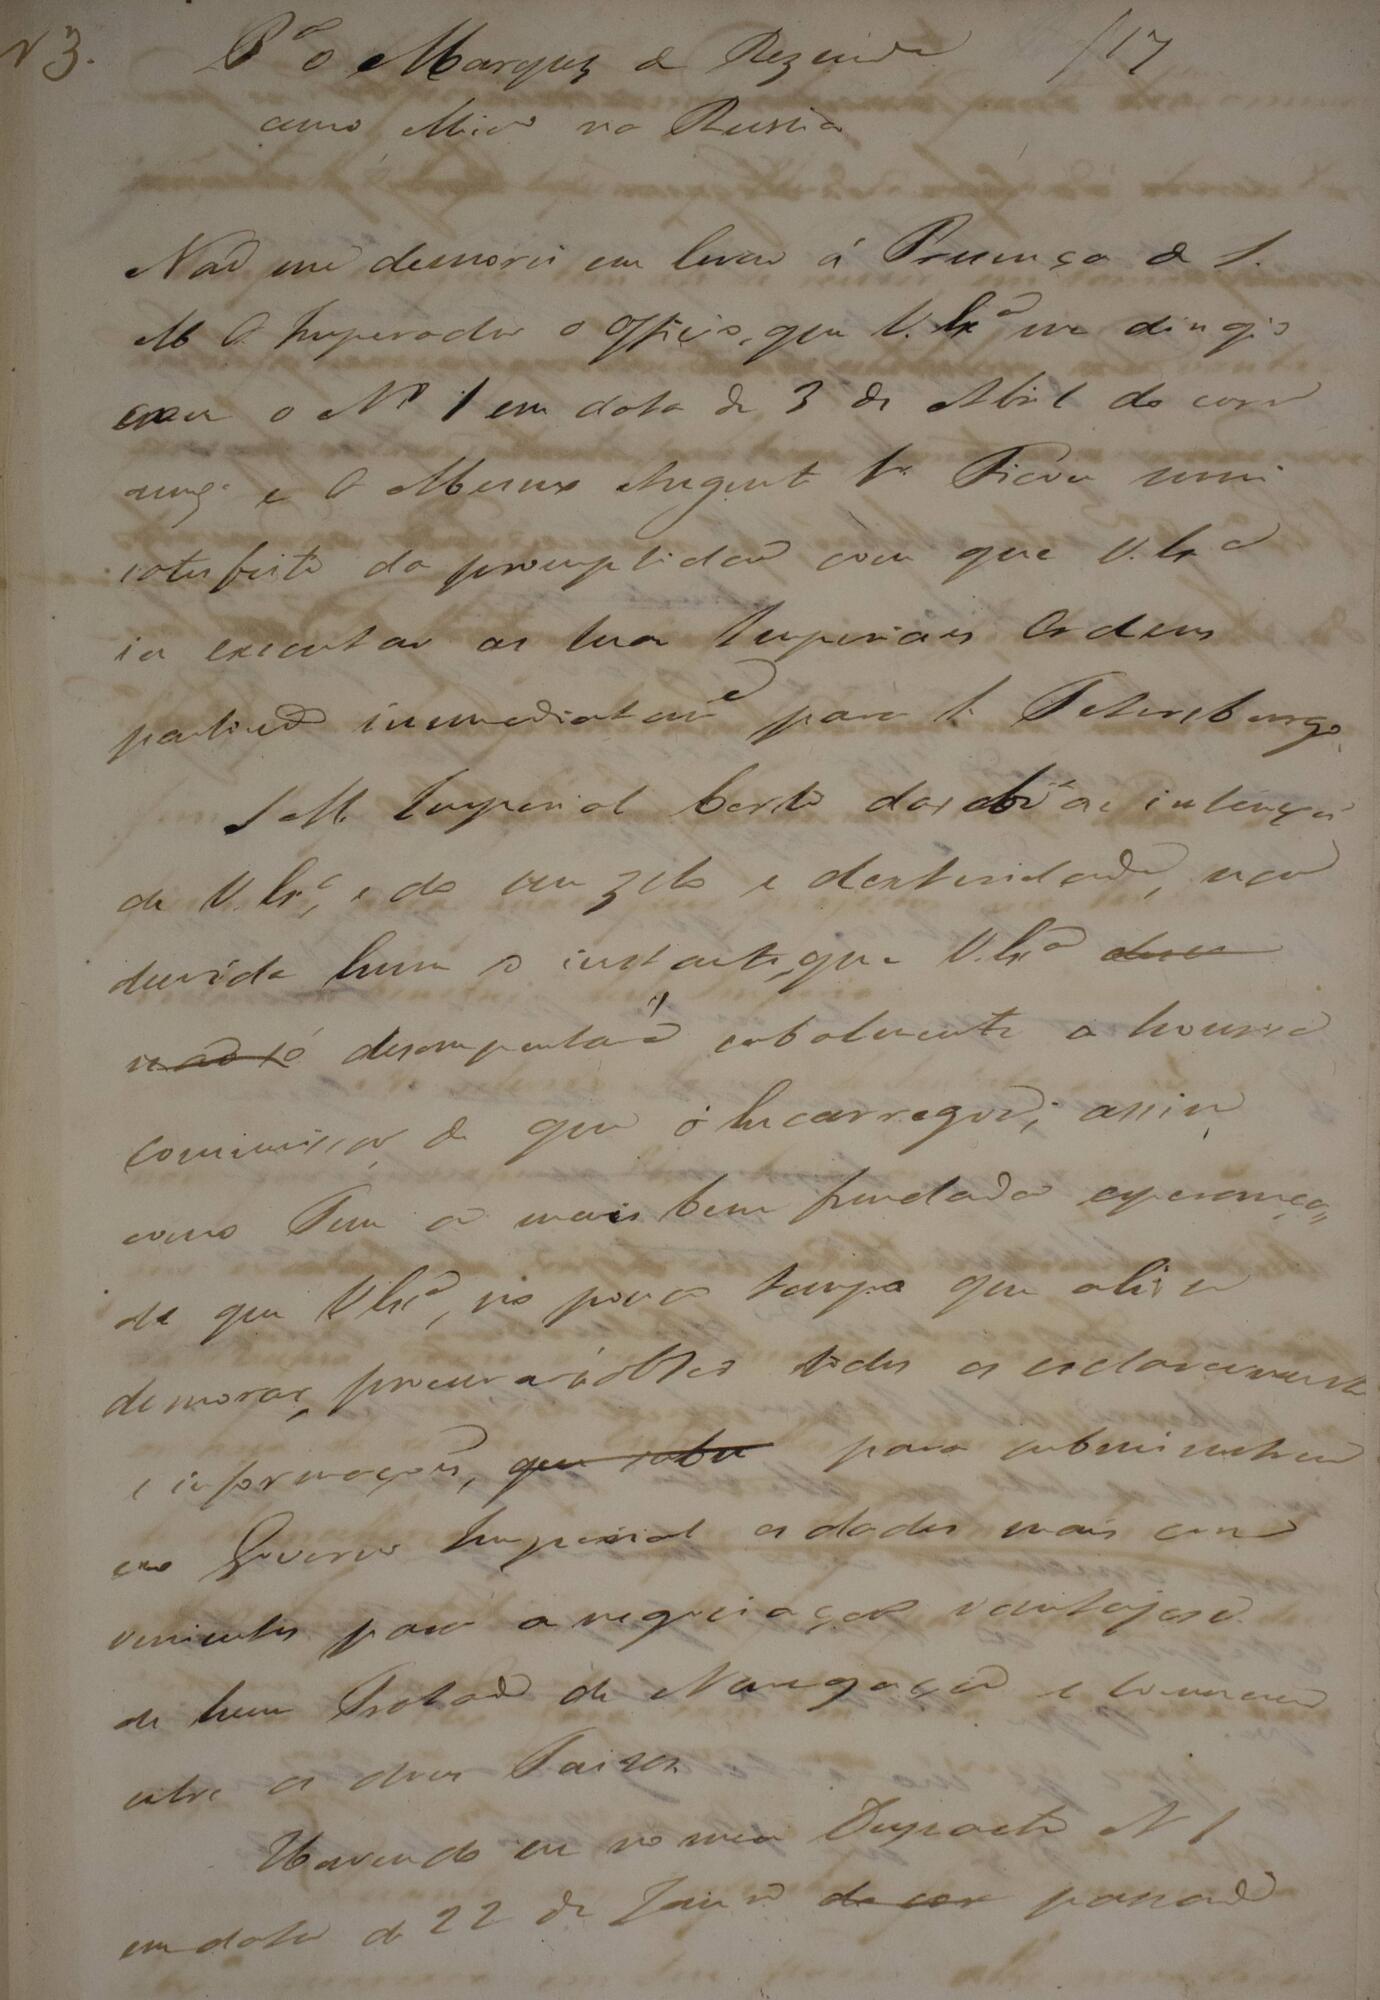 N 3. Pª o Marquez de Rezende /17
como Mino na Russia
Não me demorei em levar á Presença de S.
M O Imperador o officio, que V. Exª me dirigio
com o Nº 1 em data de 3 de Abril do corr
e O Mesmo Augusto Sr. Ficou mui
satisfeito da promptidão com que V. Exª
ia executar as suas Imperiais Ordens
partindo immediatamᵉ para S. Petersburgo.
S. M. Imperial Certo das boas intençoẽs
de V. Exª, e do seu zelo e dexteridade, não
duvida hum só instante, que V. Exª
não só desempenhará cabalmente a honrosa
commissão de que o Encarregou; assim
como Tem a mais bem fundada esperança,
de que V Exª, no pouco tempo que ali se
demorar, procurará obter todos os esclarecimentos
e informaçoẽs, que para subministrar
ao Governo Imperial os dados mais con
venientes para a negociação vantajosa
de hum Tratado de Navegação e Commercio
entre os dous Paizes.
Havendo eu no meu Despacho N 1
em data de 22 de Janrº do cor passado